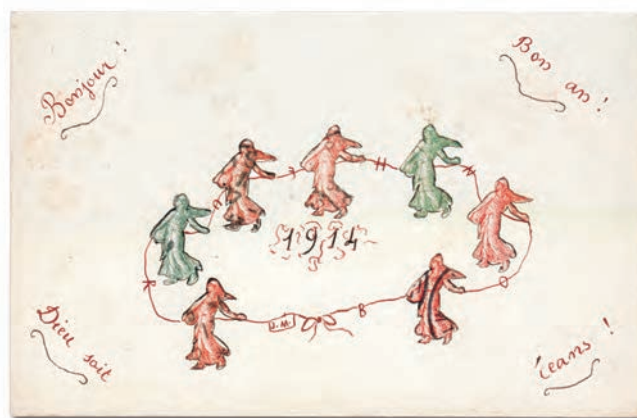 Bonjour !
Bon an !
H
1914
R
B
Dieu soit
céans !